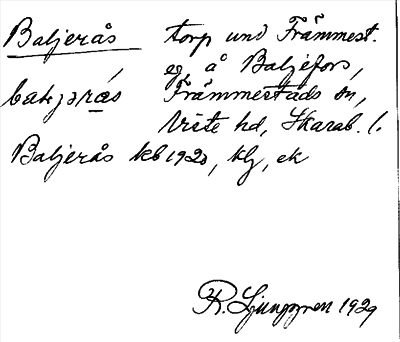 Baljerås torp und Främmest.
eg å Baljefors,
baljərås Främmestads sn,
Viste hd, Skarab. l.
Baljerås kb 1920, klj, ek
R. Ljunggren 1929